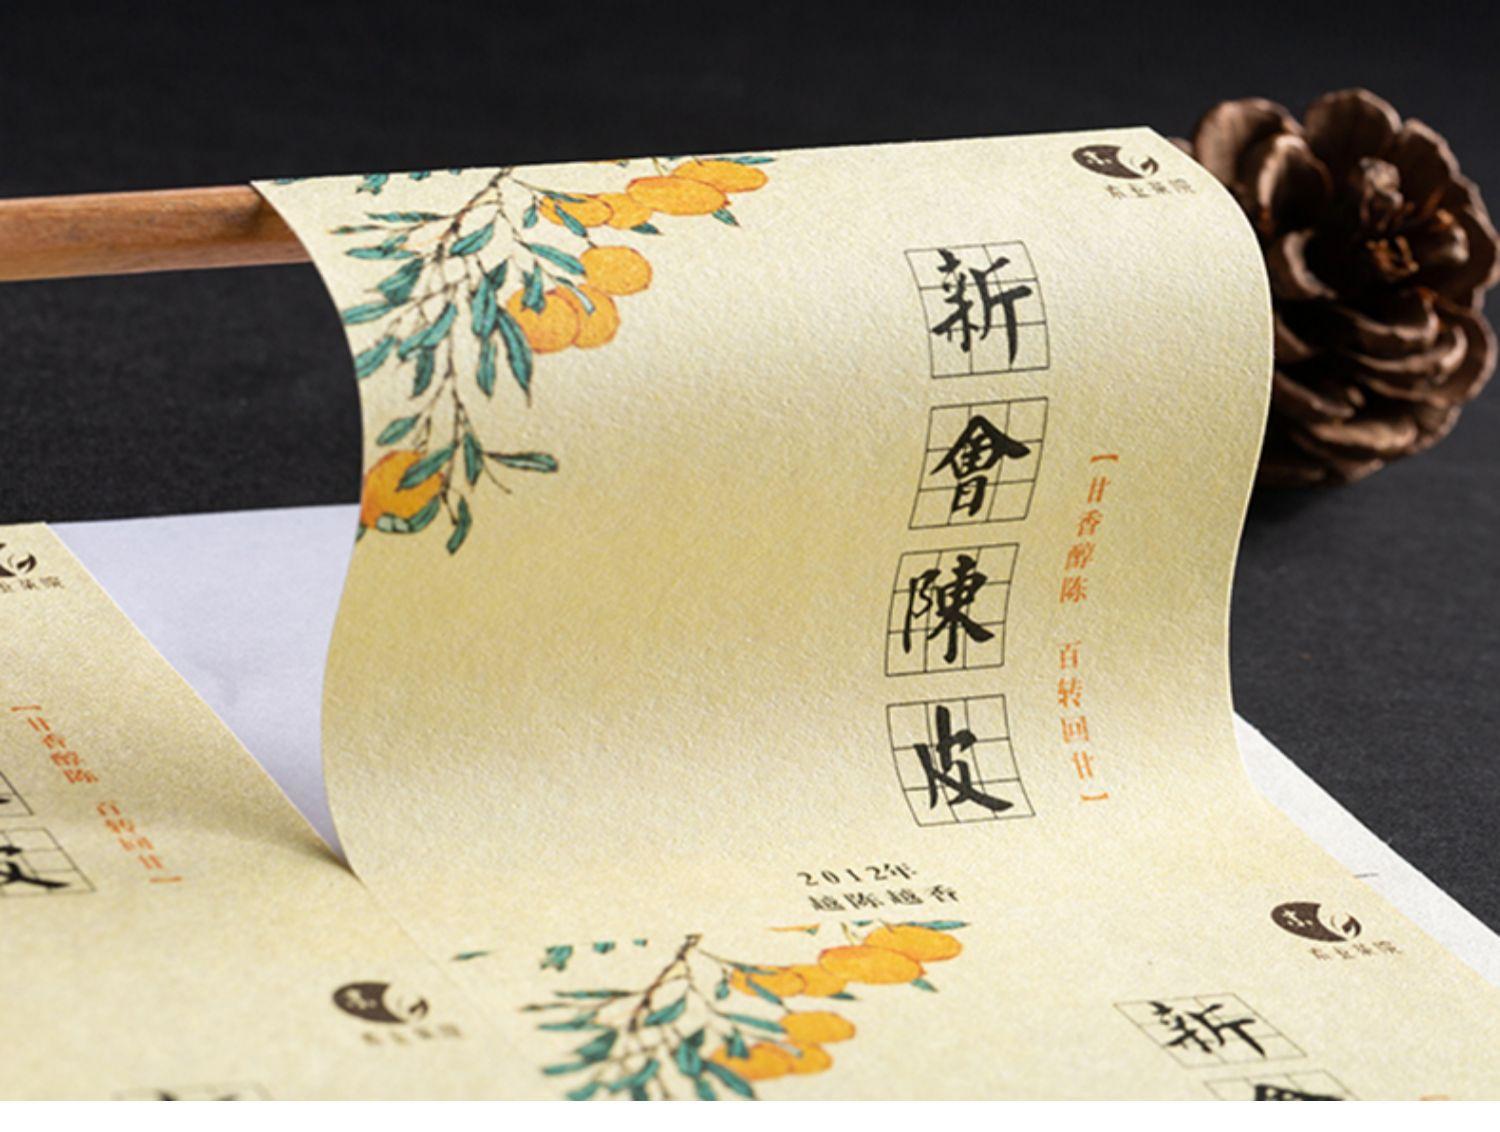 新會陳皮
【甘香醇陈 百转回甘】
2012年
越陈越香
【甘香醇陈 百转回甘】
皮
新
會